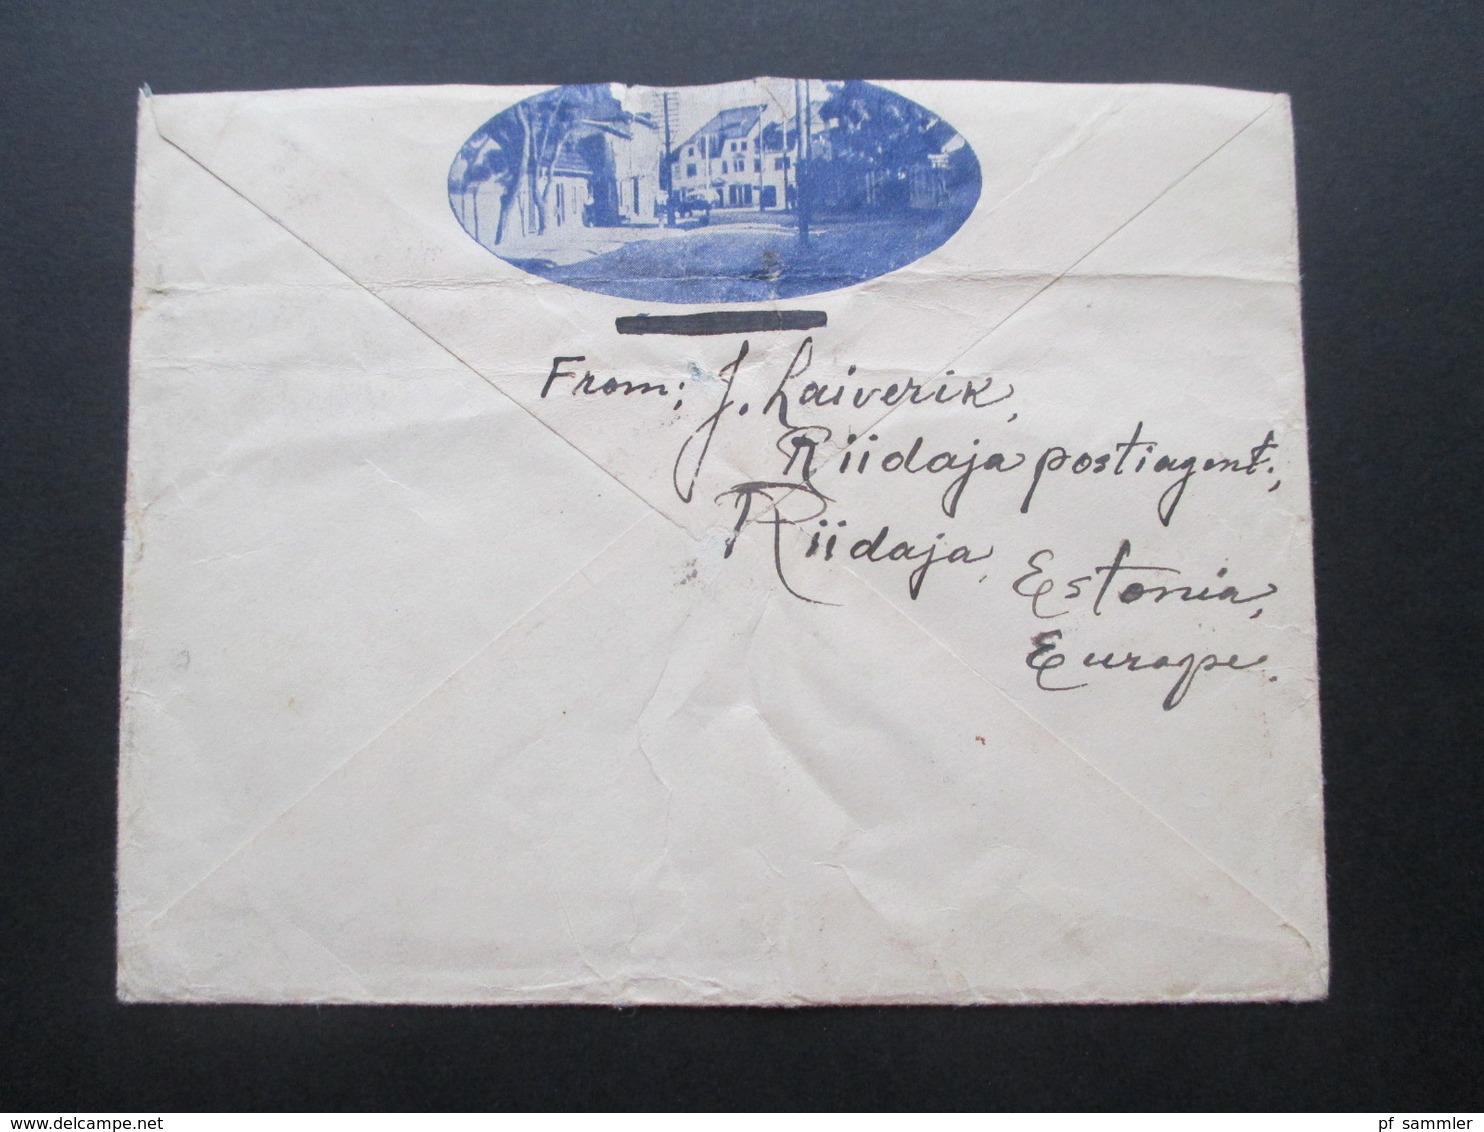 From; J. Laiverik,
Riidaja postiagent.,
Riidaja, Estonia,
Europe.
delcampe.net
pf_sammler